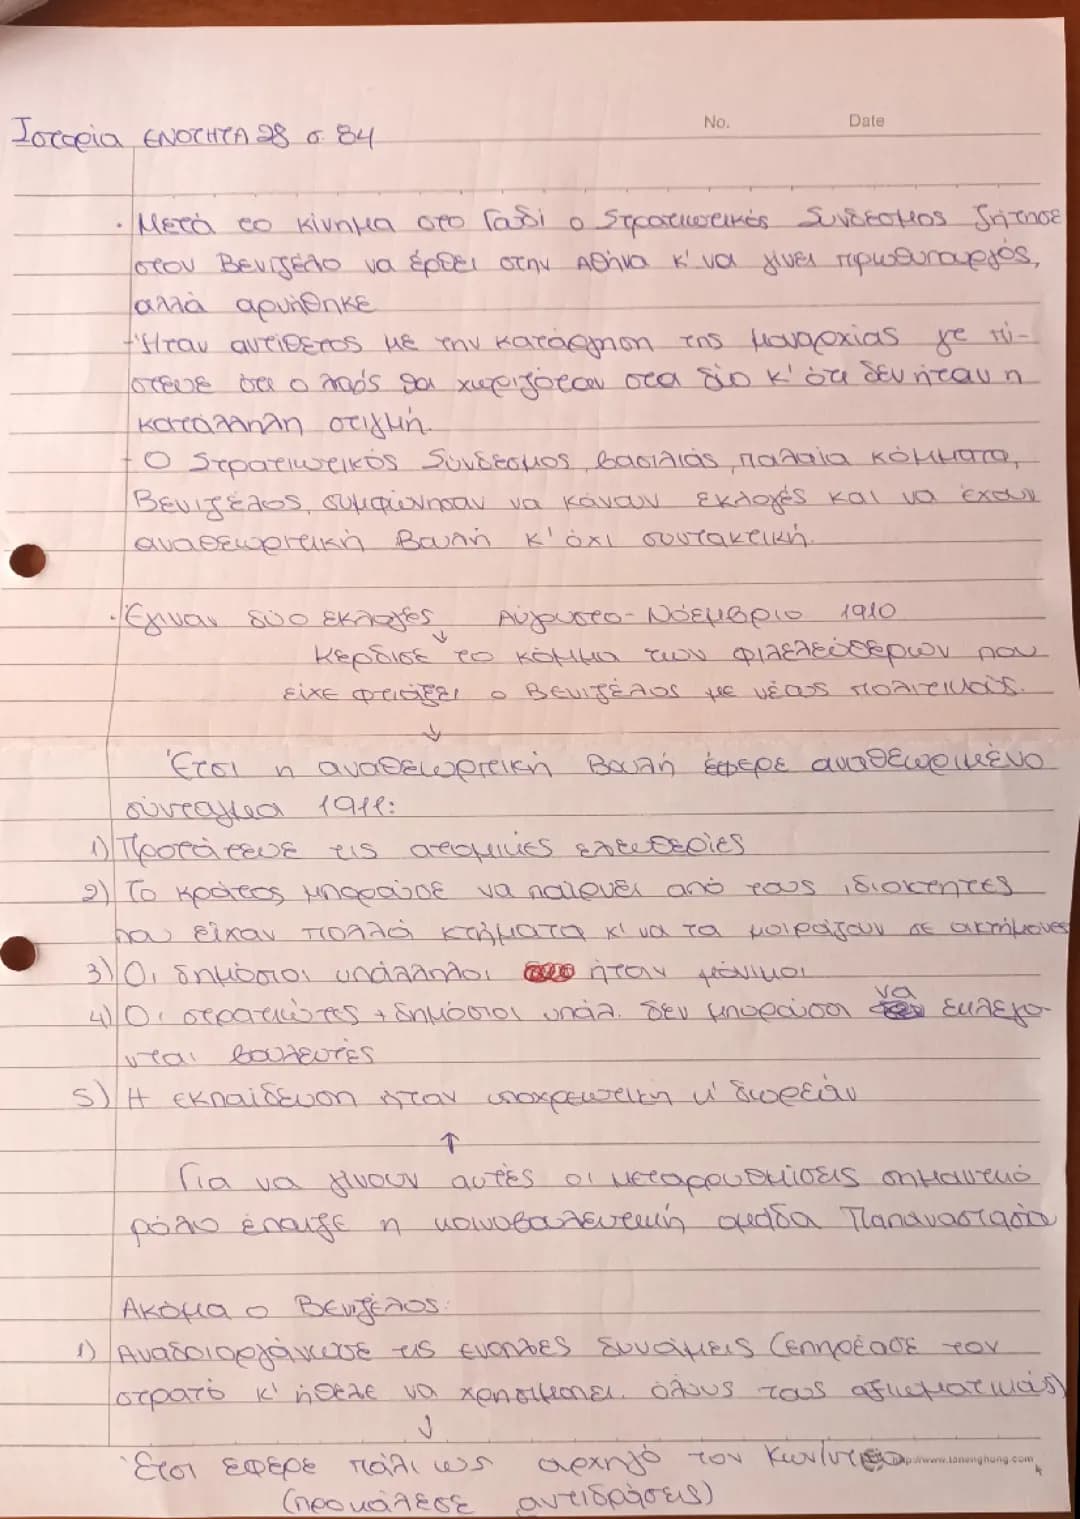 Ιστορία ΕΝΟΤΗΤΑ 28 σ 84
No. Date
· Μετά το κίνημα στο Γουδί ο Στρατιωτικός Σύνδεσμος ζήτησε
στον Βενιζέλο να έρθει στην Αθήνα κ' να γίνει πρωθυπουργός,
αλλά αρνήθηκε
- Ήταν αντίθετος με την κατάργηση της μοναρχίας γτ πί-
στευε ότι ο λαός θα χωριζόταν στα δύο κ' ότι δεν ήταν η
κατάλληλη στιγμή.
- Ο Στρατιωτικός Σύνδεσμος, βασιλιάς, παλαιά κόμματα,
Βενιζέλος, συμφώνησαν να κάνουν εκλογές και να έχουν
αναθεωρητική Βουλή κ' όχι συντακτική.
· Έγιναν δύο εκλογές Αύγουστο - Νοέμβριο 1910
↓
Κέρδισε το κόμμα των φιλελεύθερων που
είχε φτιάξει ο Βενιζέλος με νέους πολιτικούς.
↓
Έτσι η αναθεωρητική Βουλή έφερε αναθεωριμένο
σύνταγμα 1911:
1) Προστάτευε τις ατομικές ελευθερίες
2) Το κράτος μπορούσε να παίρνει από τους ιδιοκτήτες
που είχαν πολλά κτήματα κ' να τα μοιράζουν σε ακτήμονες
3) Οι δημόσιοι υπάλληλοι ήταν μόνιμοι
4) Οι στρατιώτες + δημόσιοι υπάλ. δεν μπορούσαν να εκλέγο-
νται βουλευτές
5) Η εκπαίδευση ήταν υποχρεωτική κ' δωρεάν
↑
Για να γίνουν αυτές οι μεταρρυθμίσεις σημαντικό
ρόλο έπαιξε η κοινοβουλευτική ομάδα Παπαναστασίου
Ακόμα ο Βενιζέλος:
1) Αναδοιοργάνωσε τις ένοπλες δυνάμεις (επηρέασε τον
στρατό κ' ήθελε να χρησιμοπεί όλους τους αξιωματικούς)
↓
Έτσι έφερε πάλι ως αρχηγό τον Κων/ντίνο
(προκάλεσε αντιδράσεις)